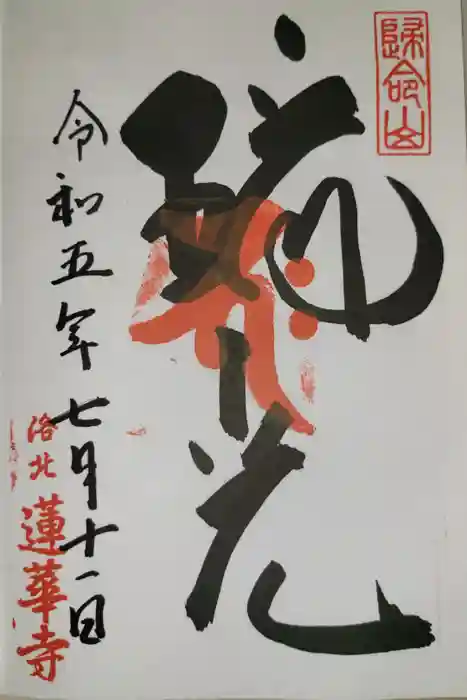 歸命山
光
令和五年七月十一日
洛北
蓮華寺